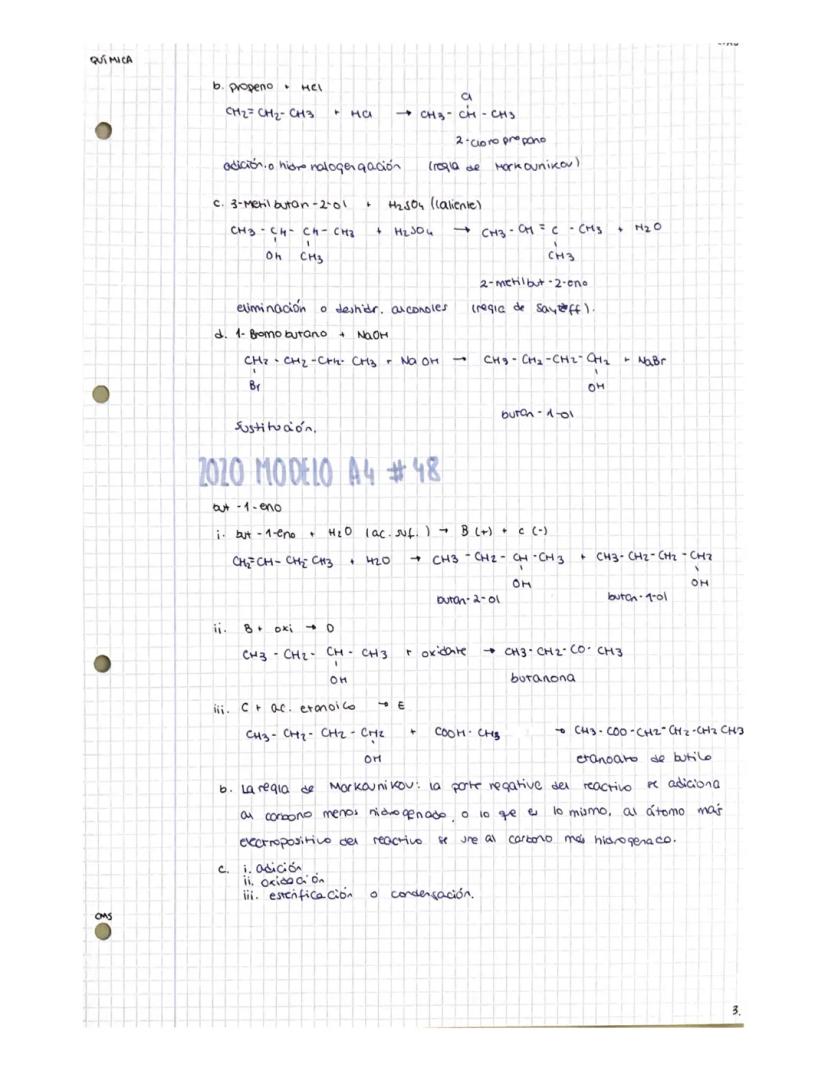 QUÍMICA
b. propeno + HCl
Cl
CH2=CH2-CH3 + HCl → CH3-CH-CH3
2-cloropropano
adición o hidrohalogenación (regla de Markovnikov)
c. 3-Metilbutan-2-ol + H2SO4 (caliente)
CH3-CH-CH-CH3 + H2SO4 → CH3-CH=C-CH3 + H2O
OH CH3 CH3
2-metilbut-2-eno
eliminación o deshidr. alcoholes (regla de Sayteff).
d. 1-Bromobutano + NaOH
CH2-CH2-CH2-CH3 + NaOH → CH3-CH2-CH2-CH2 + NaBr
Br OH
butan-1-ol
Sustitución.
2020 MODELO A4 #48
but-1-eno
i. but-1-eno + H2O (ac. sulf.) → B (+) + C (-)
CH2=CH-CH2-CH3 + H2O → CH3-CH2-CH-CH3 + CH3-CH2-CH2-CH2
OH OH
butan-2-ol butan-1-ol
ii. B + oxi → D
CH3-CH2-CH-CH3 + oxidante → CH3-CH2-CO-CH3
OH butanona
iii. C + ac. etanoico → E
CH3-CH2-CH2-CH2 + COOH-CH3 → CH3-COO-CH2-CH2-CH2 CH3
OH etanoato de butilo
b. La regla de Markovnikov: la parte negativa del reactivo se adiciona
al carbono menos hidrogenado, o lo que es lo mismo, al átomo más
electropositivo del reactivo se une al carbono más hidrogenado.
c. i. adición
ii. oxidación
iii. esterificación o condensación.
CMS
3.